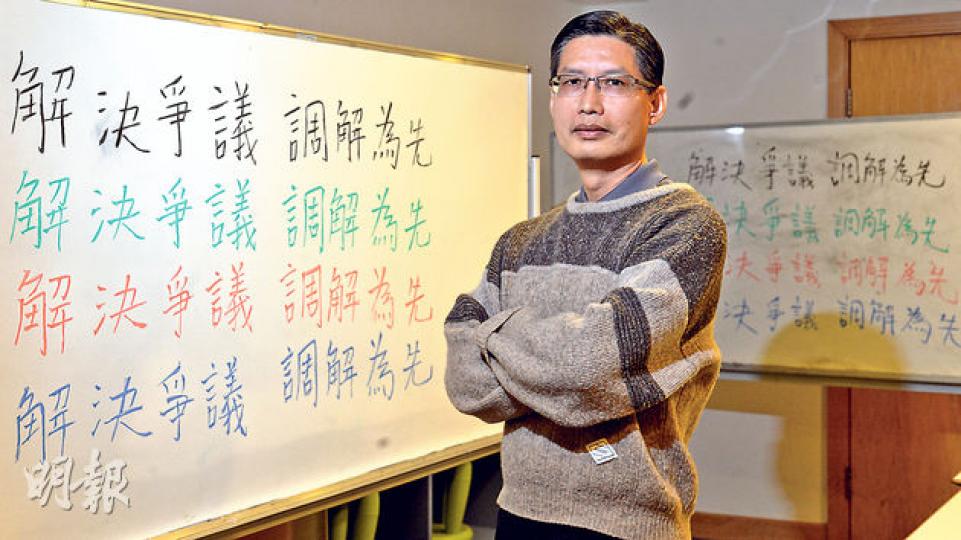 解決爭議 調解為先
解決爭議 調解為先
解決爭議 調解為先
解決爭議 調解為先
解決爭議 調解為先
決爭議 調解為先
決爭議 調解為先
決爭議 調解為先
明報